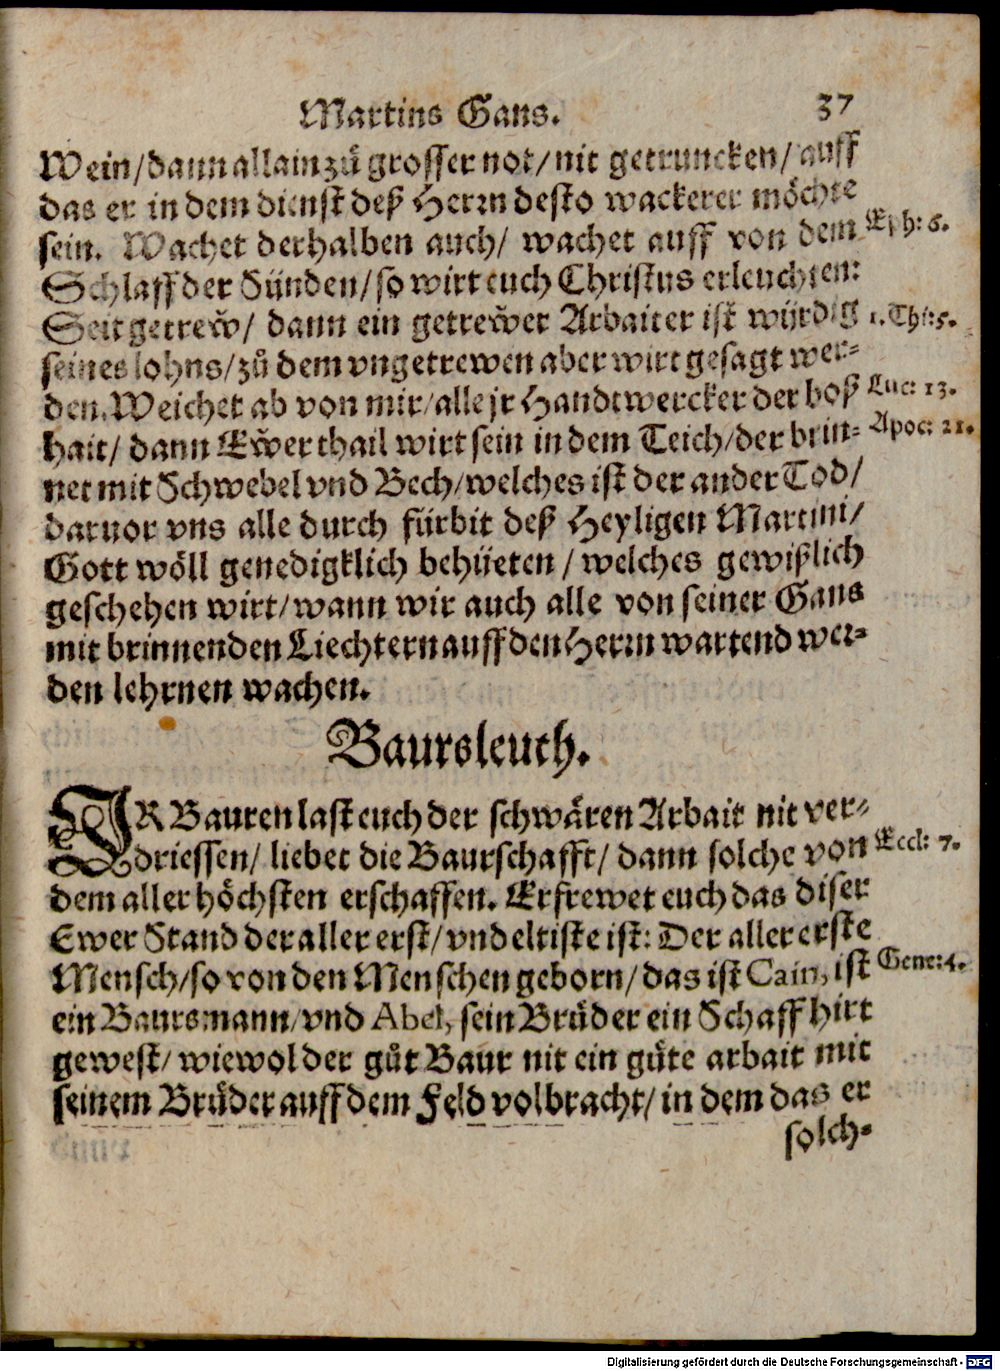 Martins Gans. 37
Wein/dann allain zů grosser not/nit getruncken/auff
das er in dem dienst deß Herrn desto wackerer möchte
sein. Wachet derhalben auch/ wachet auff von dem Eph: 6.
Schlaff der Sünden/so wirt euch Christus erleuchten:
Seit getrew̌/ dann ein getrew̌er Arbaiter ist wirdig 1. Th: 5.
seines lohns/zů dem vngetrewen aber wirt gesagt wer-
den. Weichet ab von mir/alle jr Handtwercker der boß Luc: 13.
hait/ dann Ew̌er thail wirt sein in dem Teich/der brin- Apoc: 21.
net mit Schwebel vnd Bech/welches ist der ander Tod/
daruor vns alle durch fürbit deß Heyligen Martini/
Gott wöll genedigklich behüeten / welches gewißlich
geschehen wirt/wann wir auch alle von seiner Gans
mit brinnenden Liechtern auff den Herrn wartend wer-
den lehrnen wachen.
Baursleuth.
IR Bauren last euch der schwären Arbait nit ver-
driessen/ liebet die Baurschafft/ dann solche von Eccl: 7.
dem aller höchsten erschaffen. Erfrewet euch das diser
Ewer Stand der aller erst/vnd eltiste ist: Der aller erste
Mensch/so von den Menschen geborn/das ist Cain, ist Gene: 4.
ein Baursmann/vnd Abel, sein Brůder ein Schaff hirt
gewest/ wiewol der gůt Baur nit ein gůte arbait mit
seinem Brůder auff dem Feld volbracht/ in dem das er
solch-
Digitalisierung gefördert durch die Deutsche Forschungsgemeinschaft - DFG